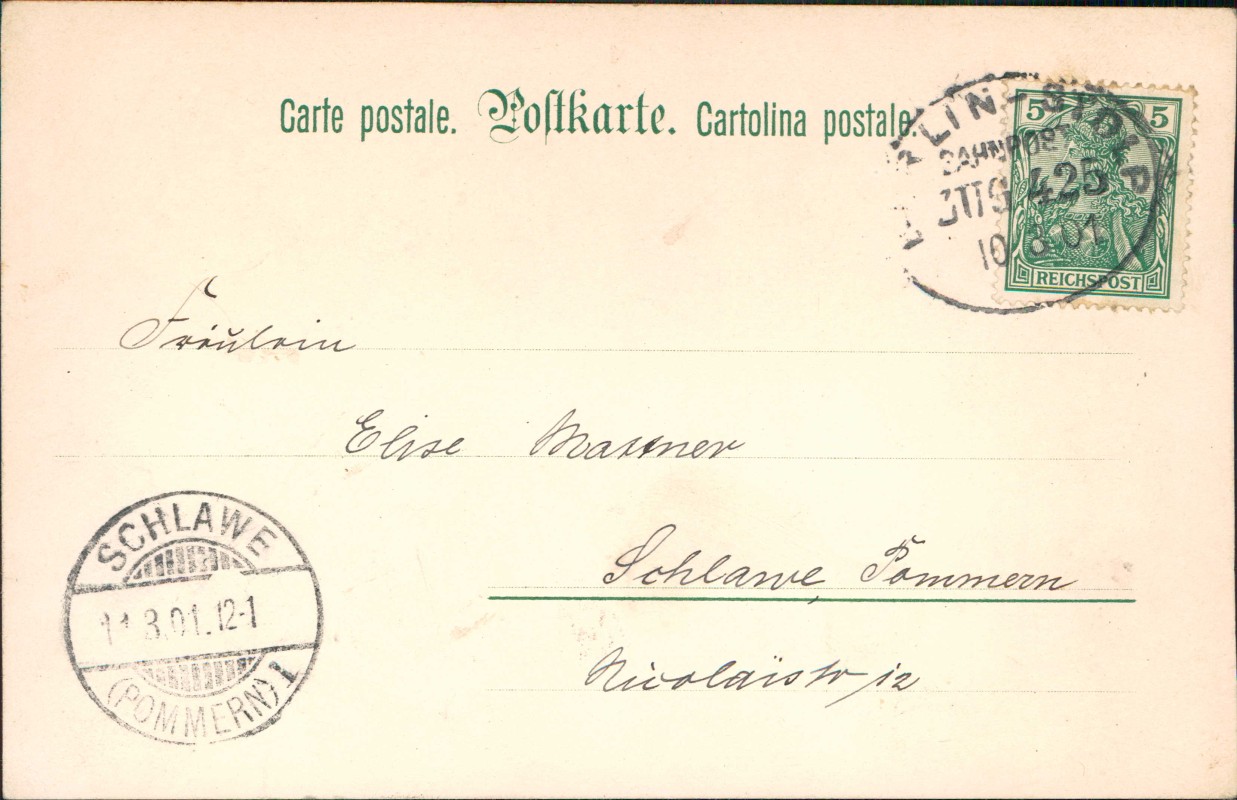 Carte postale. Postkarte. Cartolina postale.
5 5
REICHSPOST
BAHNPOST
ZUG 425
10 3 01
Fräulein
Elise Mattner
Schlawe, Pommern
Nicolaïstr 12
SCHLAWE
11.3.01.12-1
(POMMERN) 1